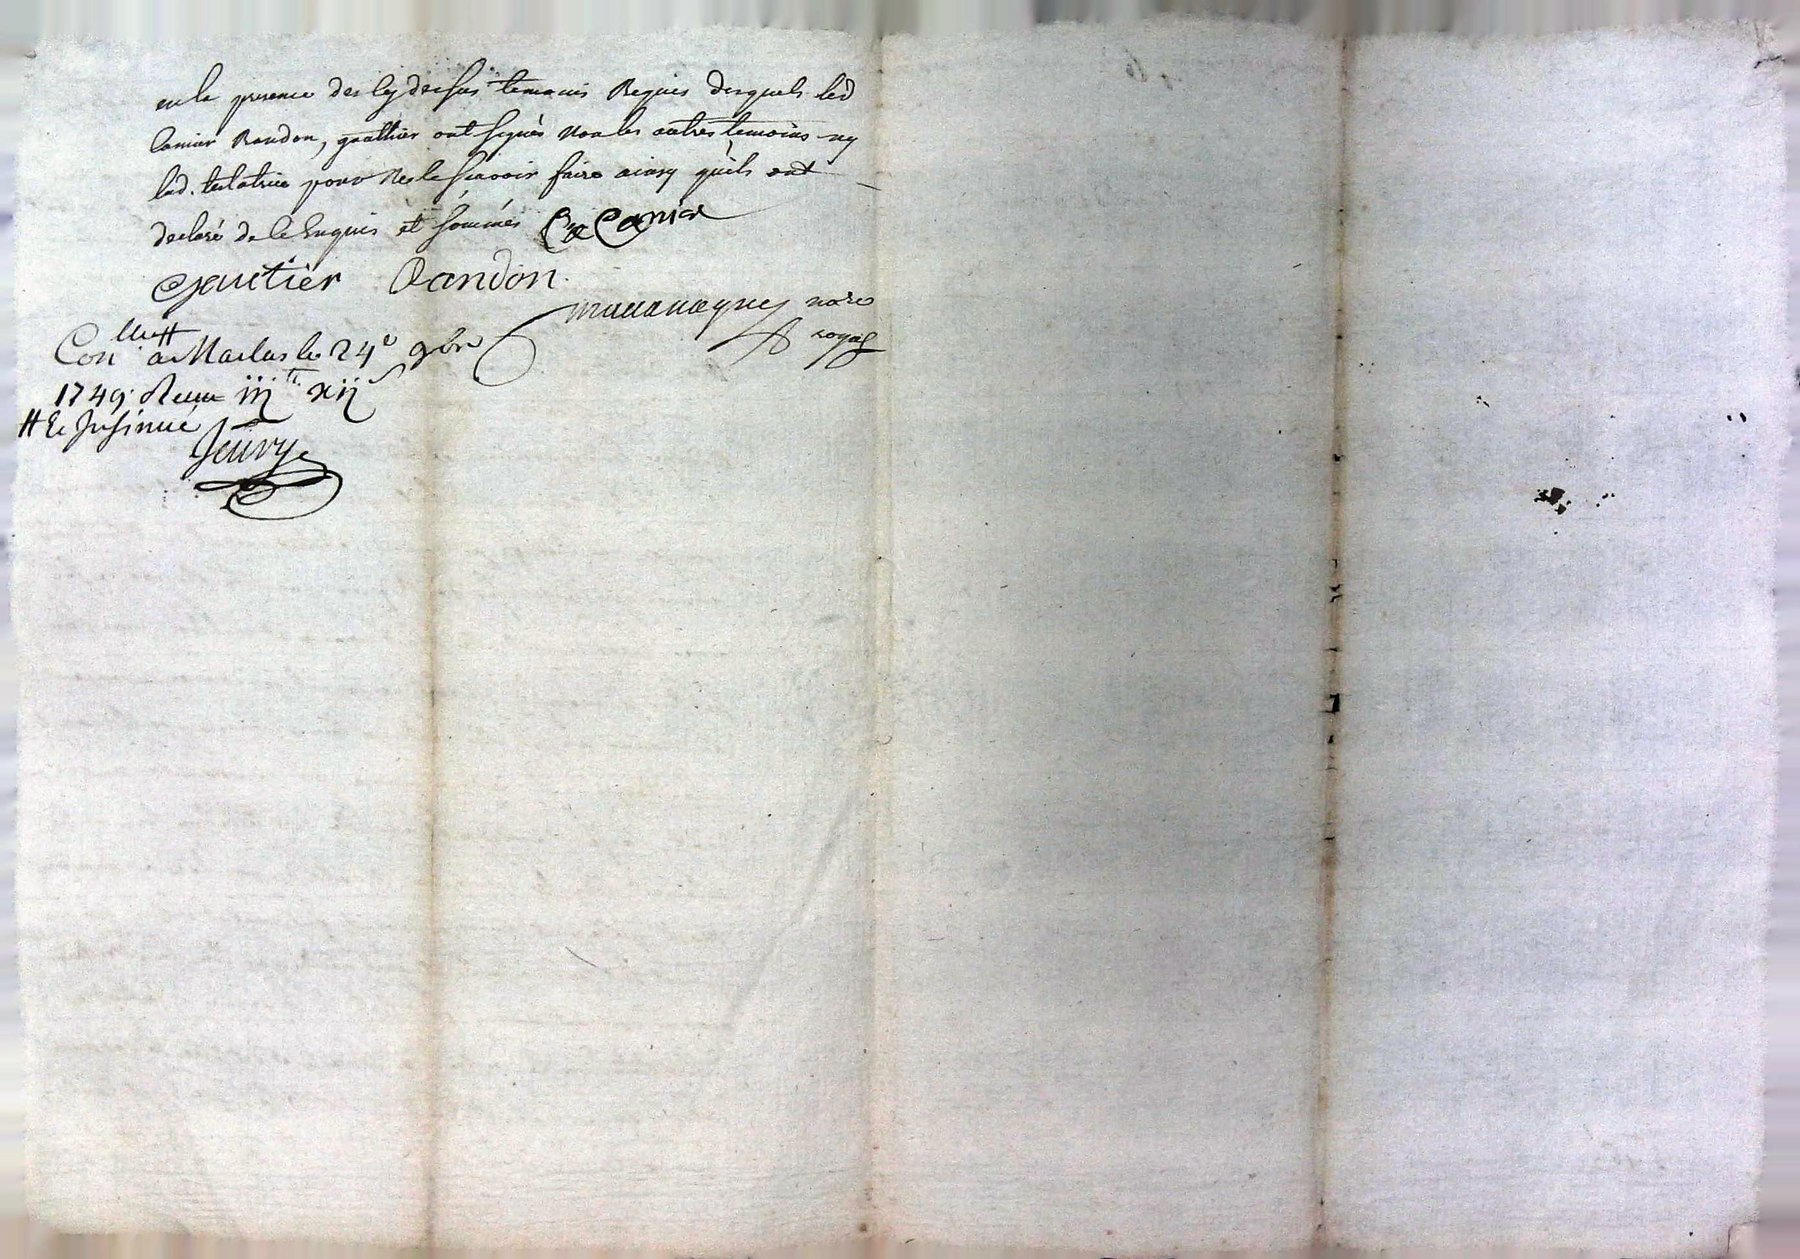 en la presence des cy dessus temoins Requis desquels led
lanier Randon, gauthier ont signés non les autres temoins ny
lad. testatrice pour ne le scavoir faire ainsy qu'ils ont
declaré de ce Enquis et sommés
Gautier Randon.
no.re
royal
Con.llé # a le 24e 9bre
1749. Receu iij lt xij s
# Et Insinué